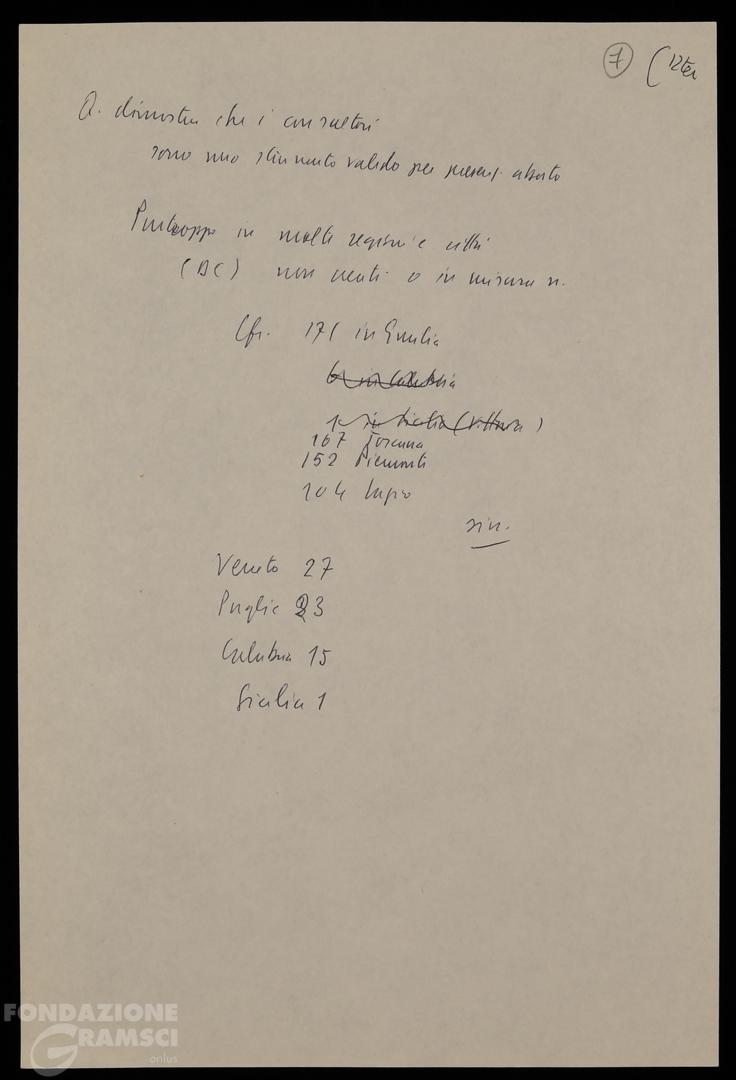 7 (12ter
Q. dimostra che i consultori
sono uno strumento valido per preven. aborto
Purtroppo in molte regioni e città
(DC) non creati o in misura n.
Cfr. 171 in Emilia
in Calabria
1 in Sicilia (Vittoria)
167 Toscana
152 Piemonte
104 Lazio
sin.
Veneto 27
Puglie 23
Calabria 15
Sicilia 1
FONDAZIONE
GRAMSCI
onlus